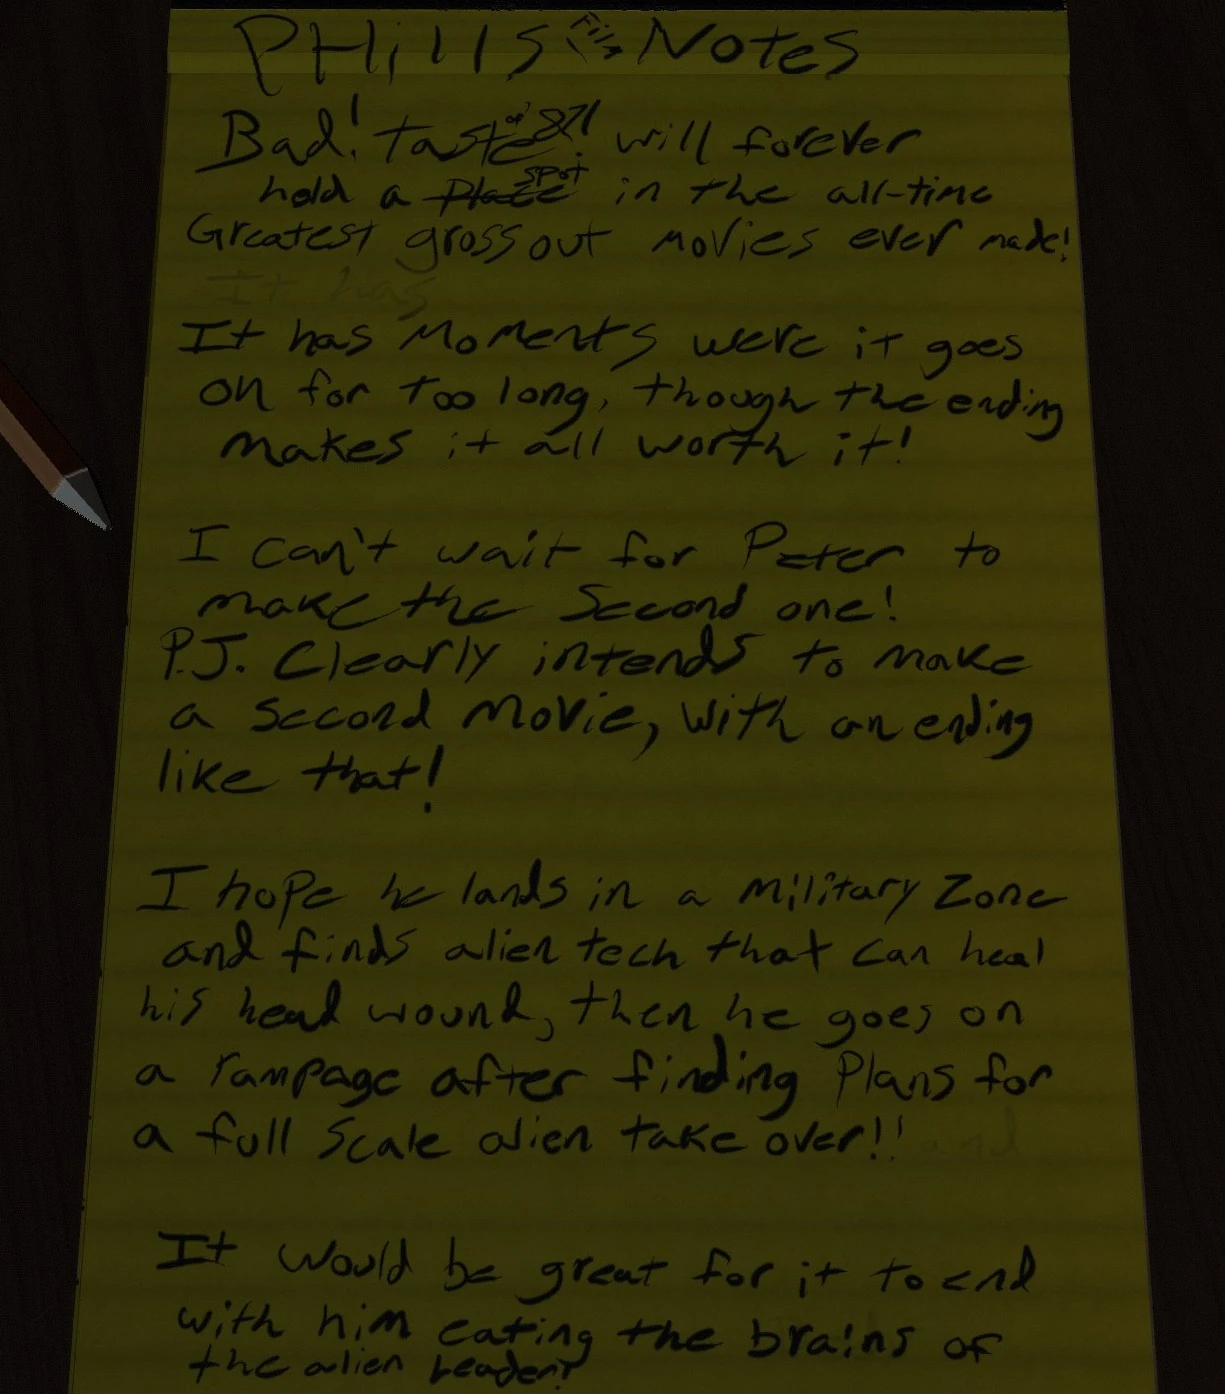 PHills Film Notes
Bad! taste of 87! will forever
hold a place spot in the all-time
Greatest gross out movies ever made!
It has
It has Moments were it goes
on for too long, though the ending
makes it all worth it!
I can't wait for Peter to
make the Second one!
P.J. Clearly intends to make
a second movie, with an ending
like that!
I hope he lands in a military Zone
and finds alien tech that can heal
his head wound, then he goes on
a rampage after finding Plans for
a full scale alien take over!!
and
It would be great for it to end
with him eating the brains of
the alien leader!